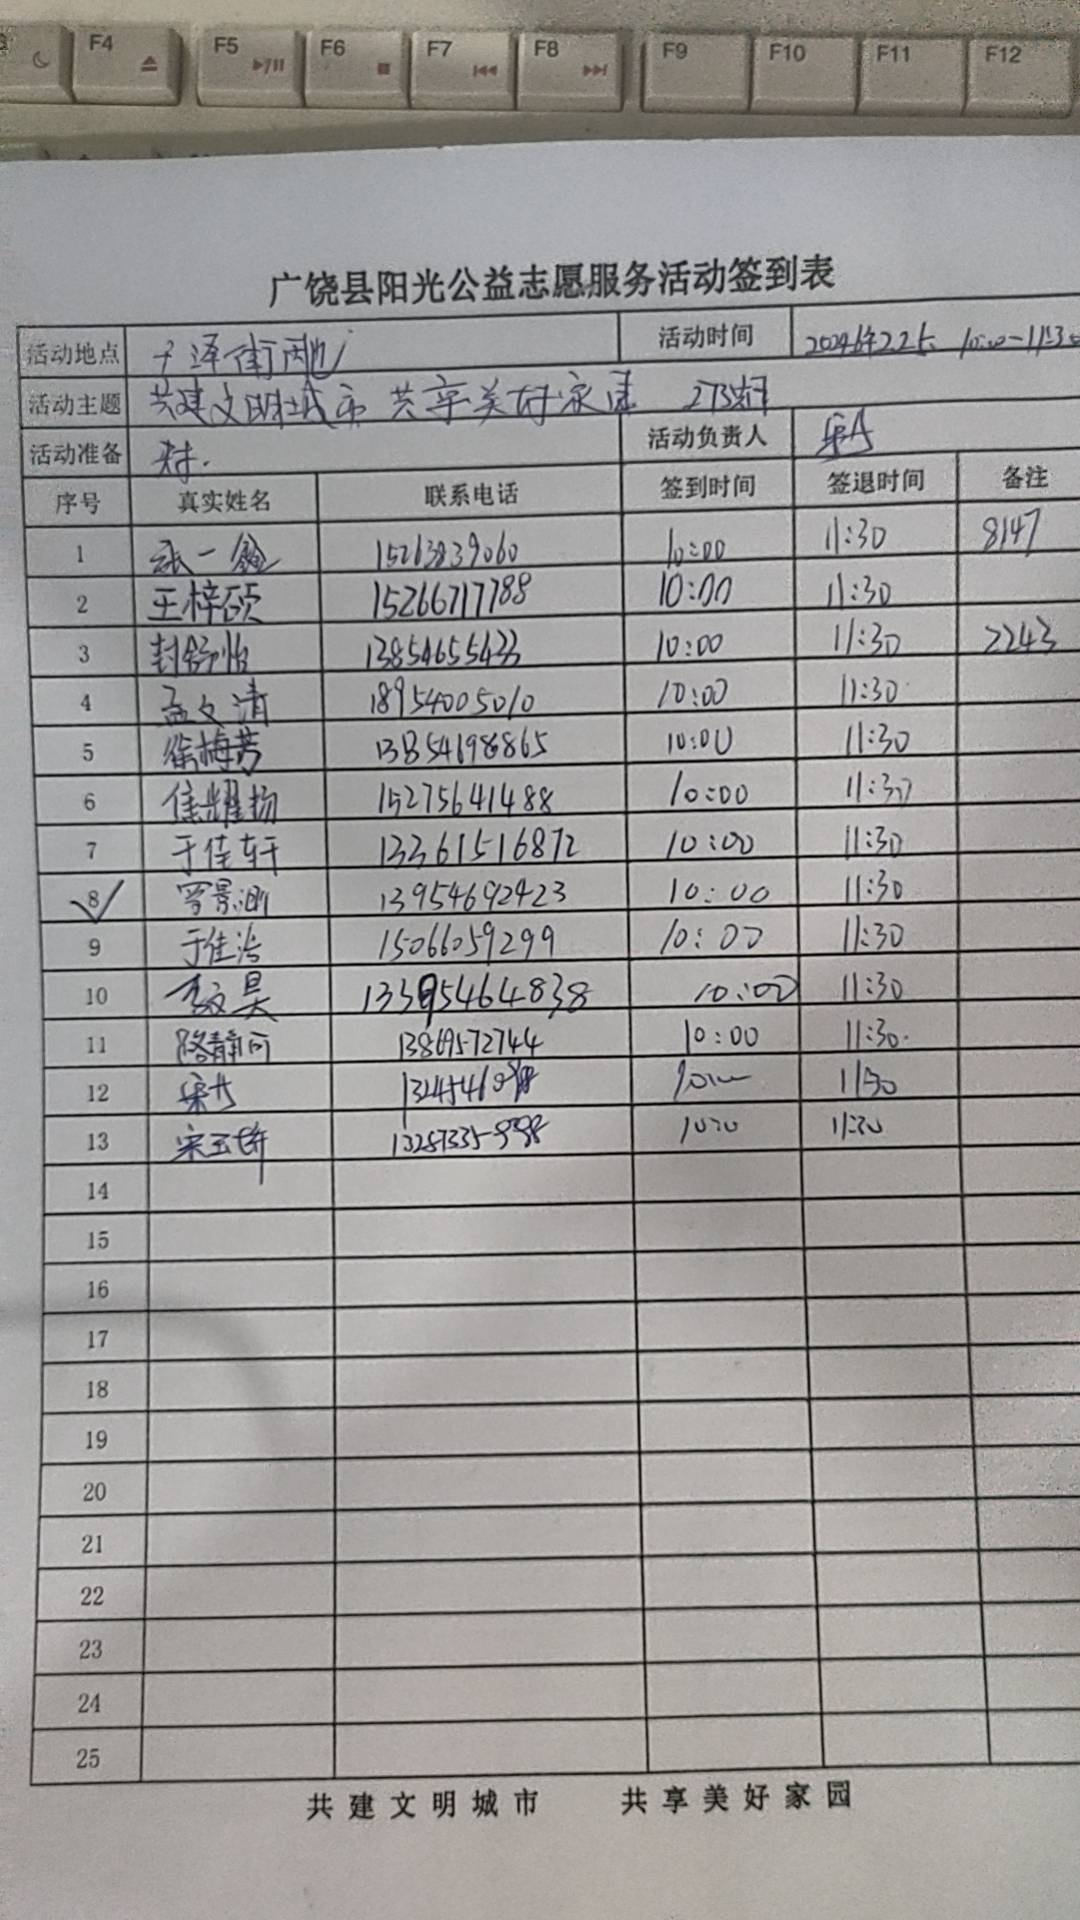 F4
F5
F6
F7
F8
F9
F10
F11
F12
广饶县阳光公益志愿服务活动签到表
活动地点 活动时间 10:00-11:30
活动主题 共建文明城市 共享美好家园
活动准备 活动负责人
序号 真实姓名 联系电话 签到时间 签退时间 备注
1 15263839060 10:00 11:30 8147
2 王梓硕 15266717788 10:00 11:30
3 封舒怡 13854655433 10:00 11:30 2243
4 孟文清 18954005010 10:00 11:30
5 徐梅芳 13854698865 10:00 11:30
6 焦耀扬 15275641488 10:00 11:30
7 于佳轩 13361516872 10:00 11:30
8 13954692423 10:00 11:30
9 于佳浩 15066059299 10:00 11:30
10 李文昊 10:00 11:30
11 路静可 13869572744 10:00 11:30
12 11:30
13 11:30
14
15
16
17
18
19
20
21
22
23
24
25
共建文明城市 共享美好家园